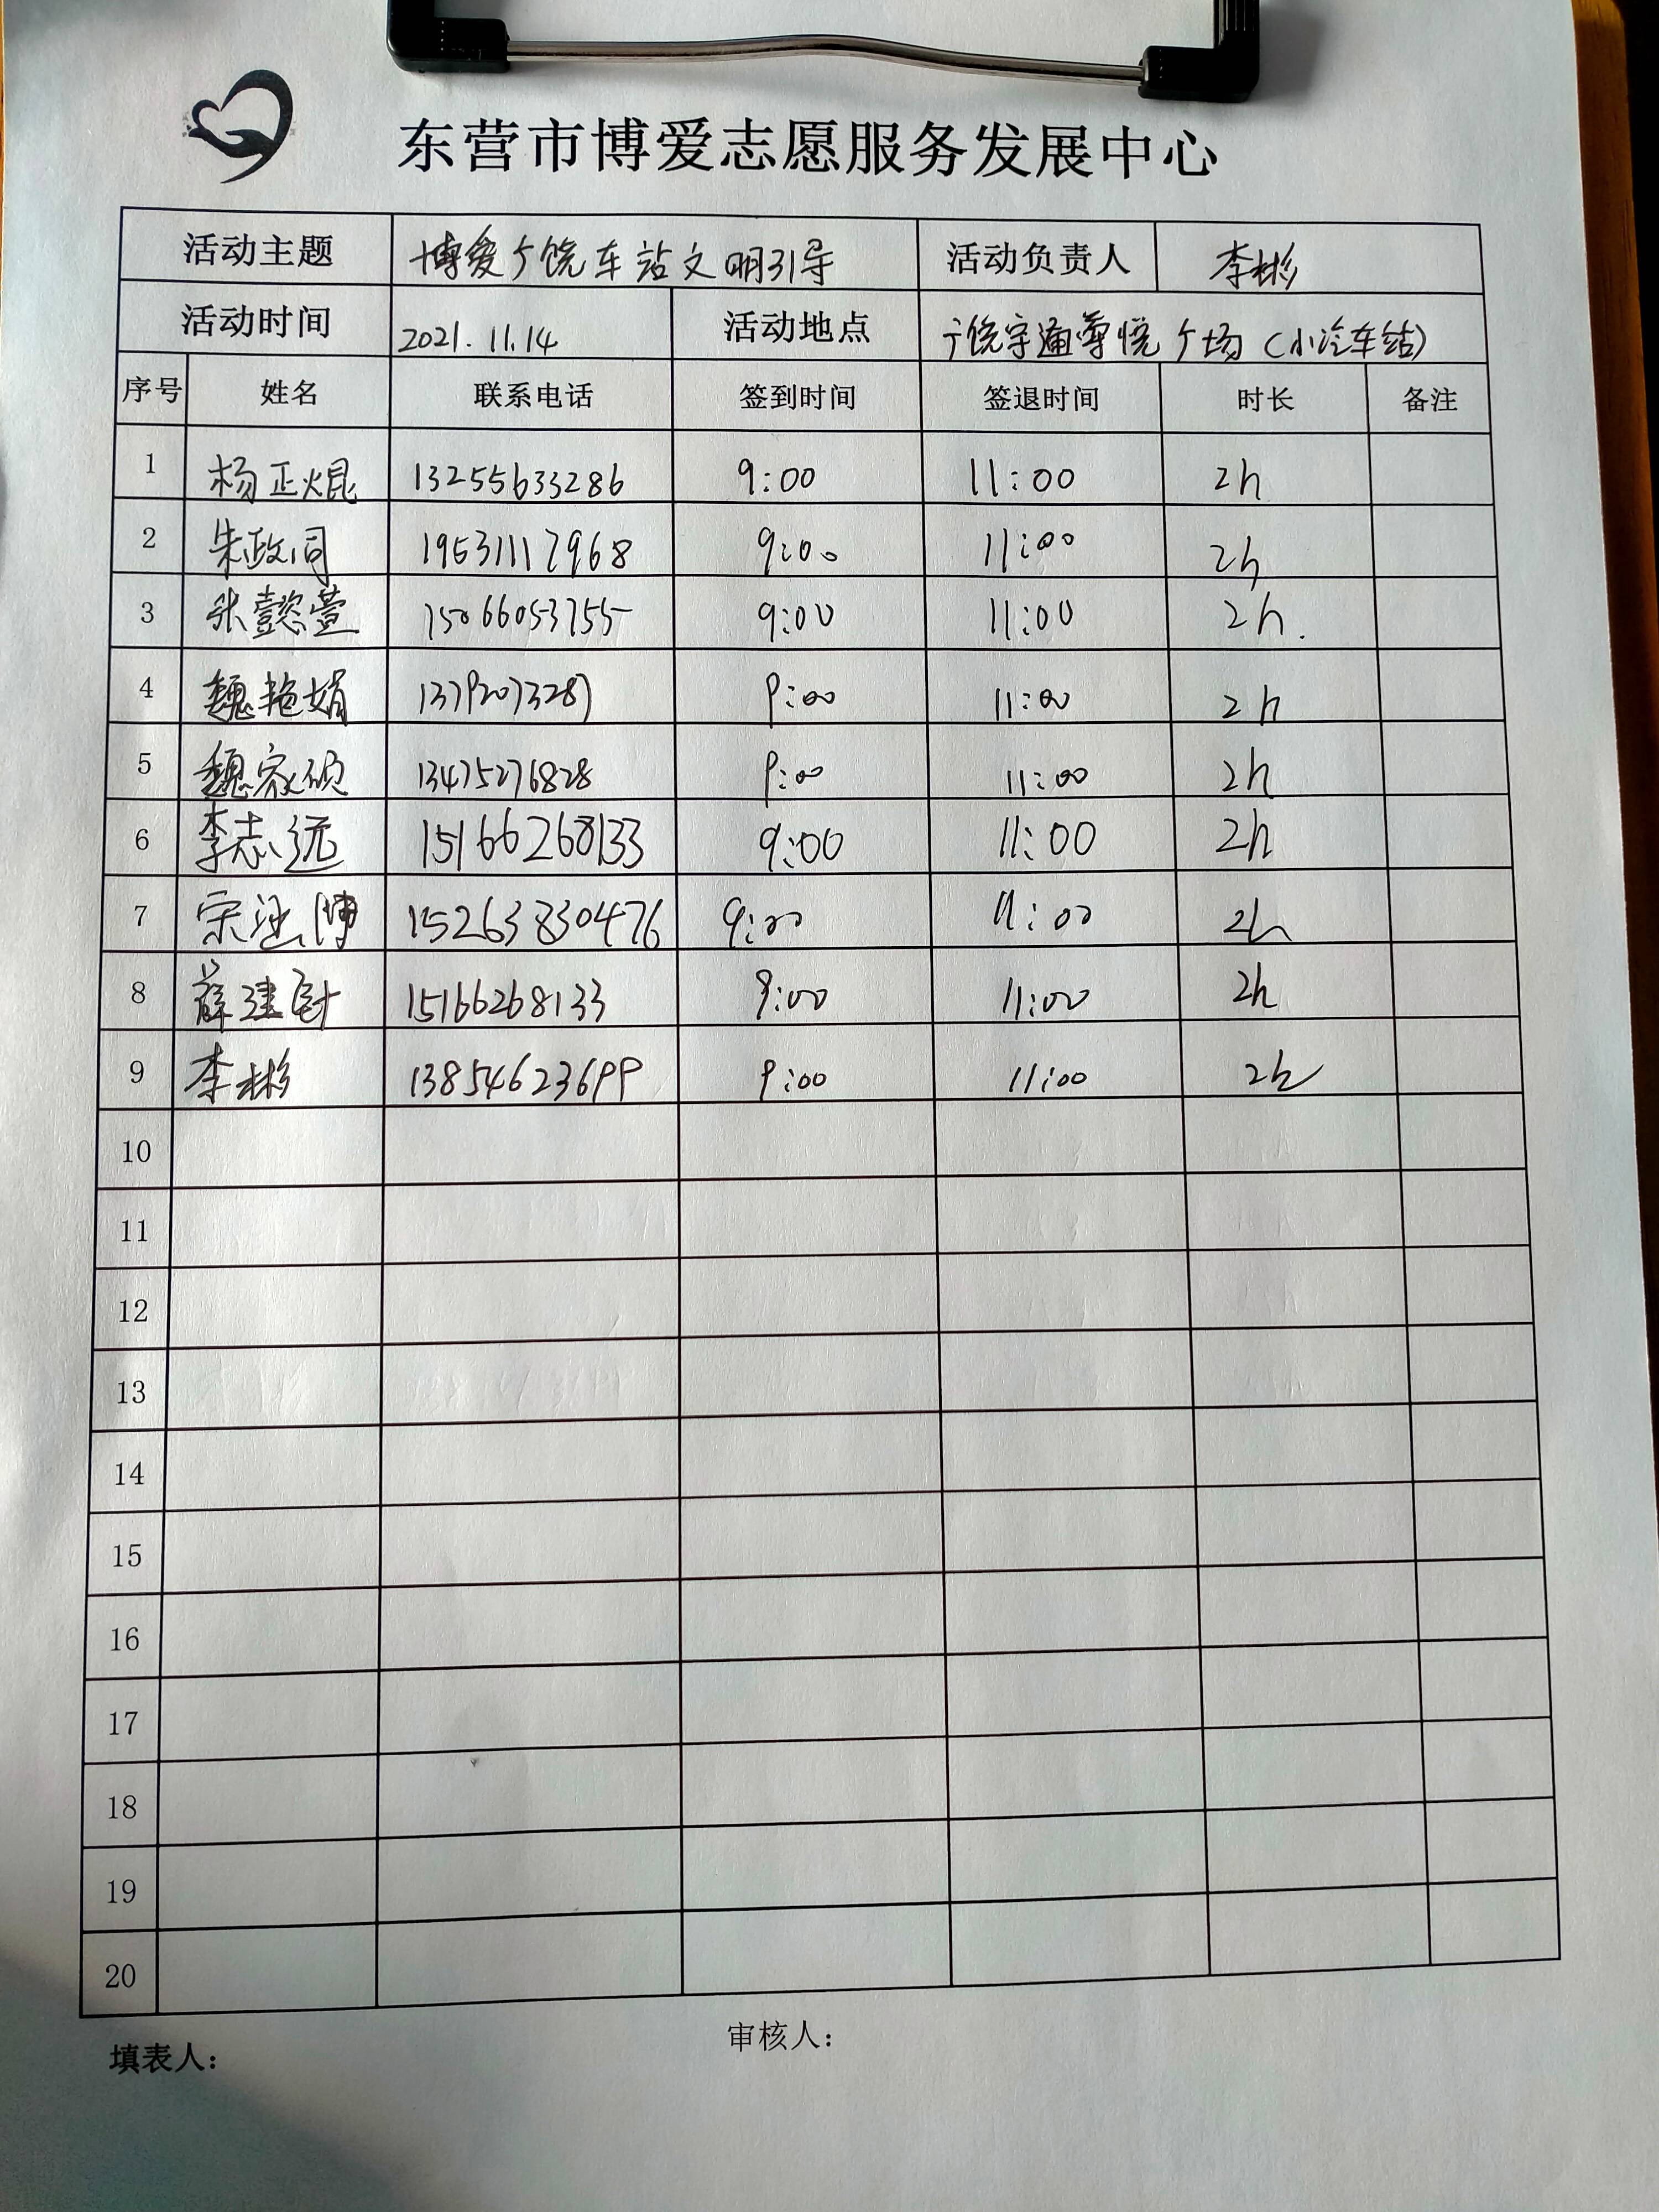 东营市博爱志愿服务发展中心
活动主题 博爱广饶车站文明引导 活动负责人 李彬
活动时间 2021.11.14 活动地点 广饶宇通尊悦广场（小冷车站）
序号 姓名 联系电话 签到时间 签退时间 时长 备注
1 杨正焜 13255633286 9:00 11:00 2h
2 朱政同 19531117968 9:00 11:00 2h
3 张懿萱 15066053755 9:00 11:00 2h.
4 魏艳娟 13792073287 9:00 11:00 2h
5 魏家硕 13475276828 9:00 11:00 2h
6 李志远 15166268133 9:00 11:00 2h
7 宋涵博 15263830476 9:00 11:00 2h
8 薛建 15166268133 9:00 11:00 2h
9 李彬 13854623699 9:00 11:00 2h
10
11
12
13
14
15
16
17
18
19
20
填表人： 审核人：